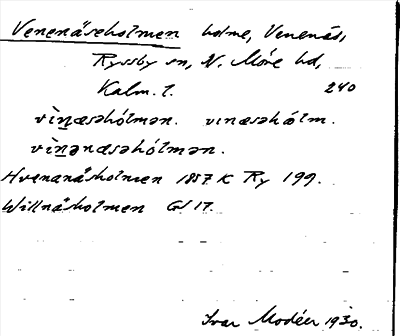 Venenäseholmen holme, Venenäs,
Ryssby sn, N. Möre hd,
Kalm. l. 240
vìn̲æsəhólmən. vınæsəhólm.
vìn̲ənæsəhólmən.
Hvenanäsholmen 1857 K Ry 199.
Willnäsholmen GS 17.
Ivar Modéer 1930.